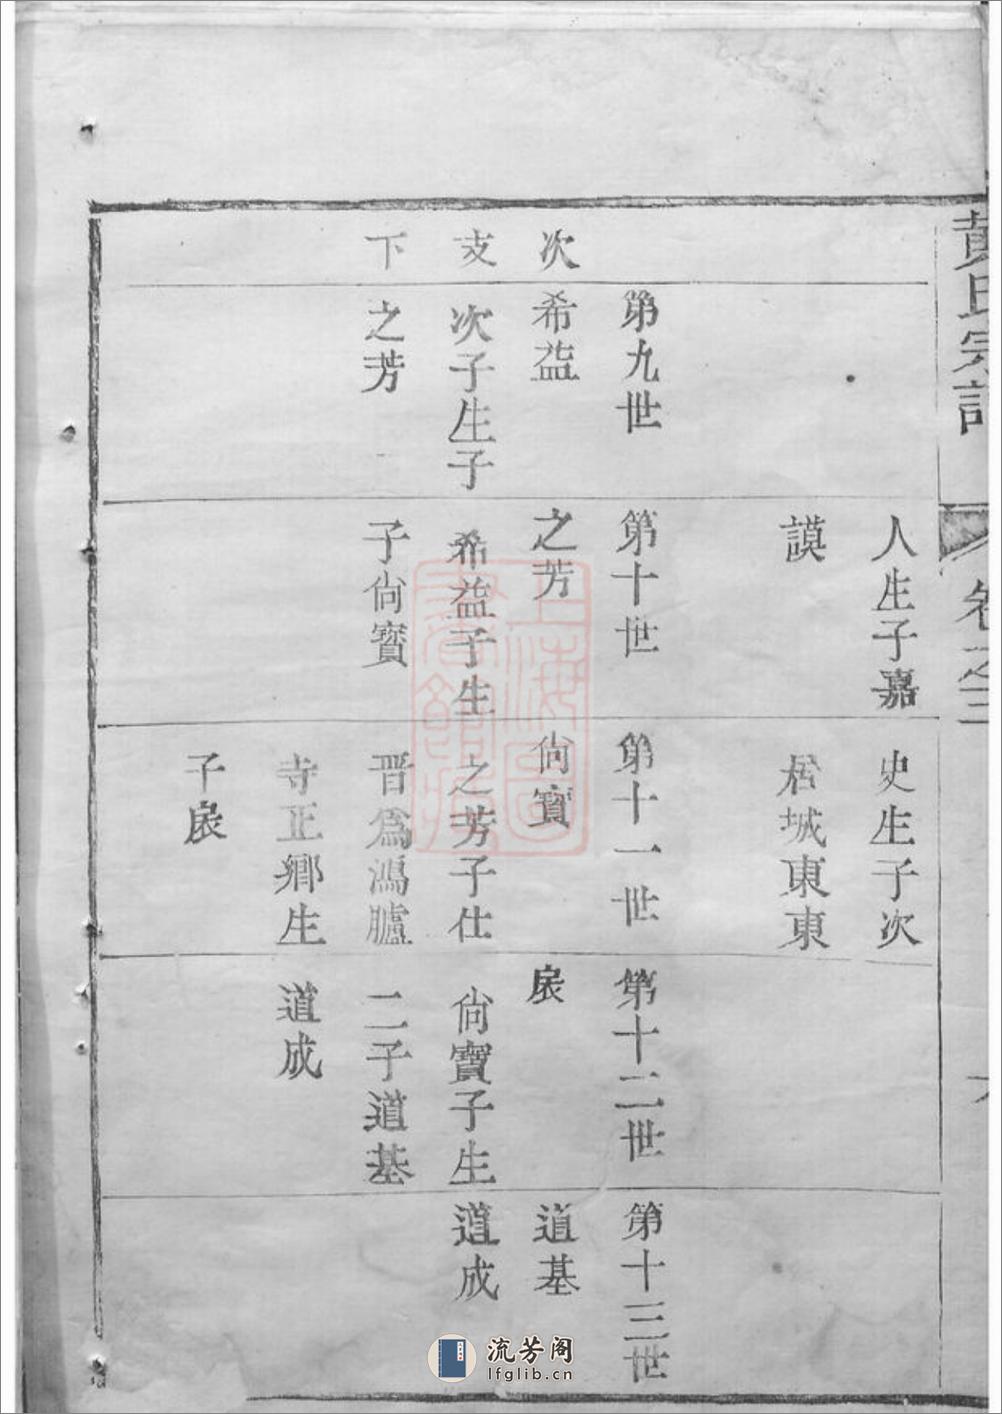 黃氏宗譜
卷之三
人生子嘉
謨
史生子次
居城東東
次
支
下
第九世
希益
次子生子
之芳
第十世
之芳
希益子生
子尙寳
第十一世
尙寳
之芳子仕
晋爲鴻臚
寺正鄉生
子扆
第十二世
扆
尙寶子生
二子道基
道成
第十三世
道基
道成
上海圖
書館藏
流芳阁
lfglib.cn